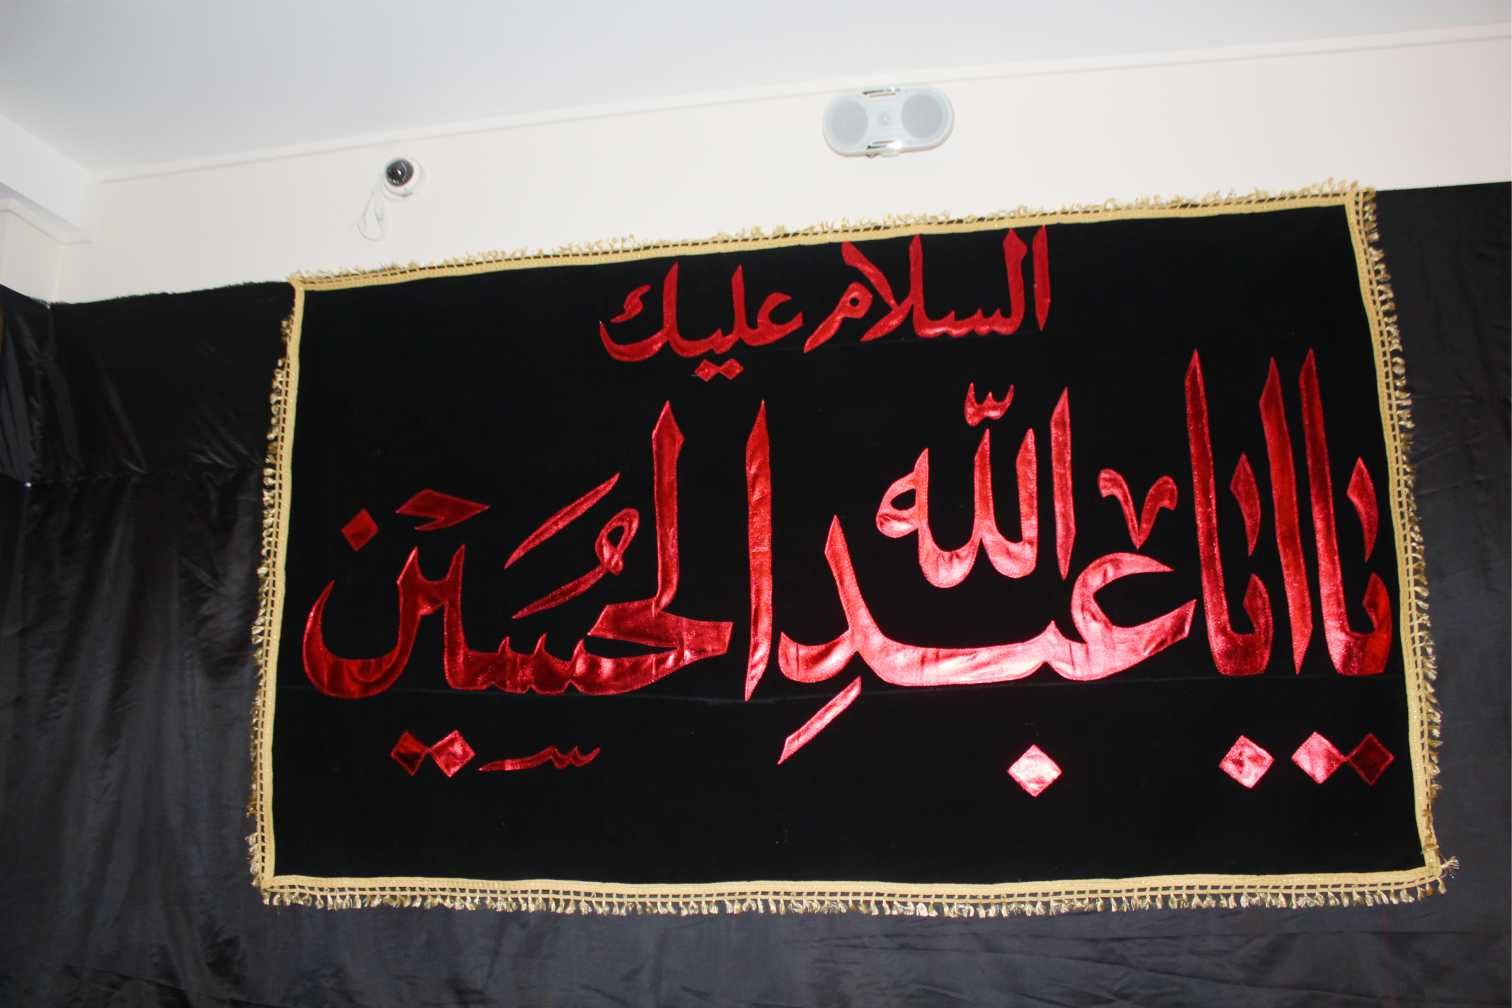 السلام عليك
يا ابا عبدِ اللّه الحُسَين